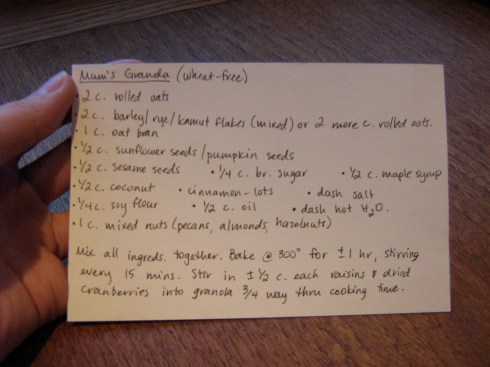 Mum's Granola (wheat-free)
• 2 c. rolled oats
• 2 c. barley/rye/kamut flakes (mixed) or 2 more c. rolled oats.
• 1 c. oat bran
• ½ c. sunflower seeds/pumpkin seeds
• ½ c. sesame seeds • ¼ c. br. sugar • ½ c. maple syrup
• ½ c. coconut • cinnamon - lots • dash salt
• ¼ c. soy flour • ½ c. oil • dash hot H₂O.
• 1 c. mixed nuts (pecans, almonds, hazelnuts)
Mix all ingreds. together. Bake @ 300° for ± 1 hr, stirring
every 15 mins. Stir in ± ½ c. each raisins & dried
cranberries into granola ¾ way thru cooking time.